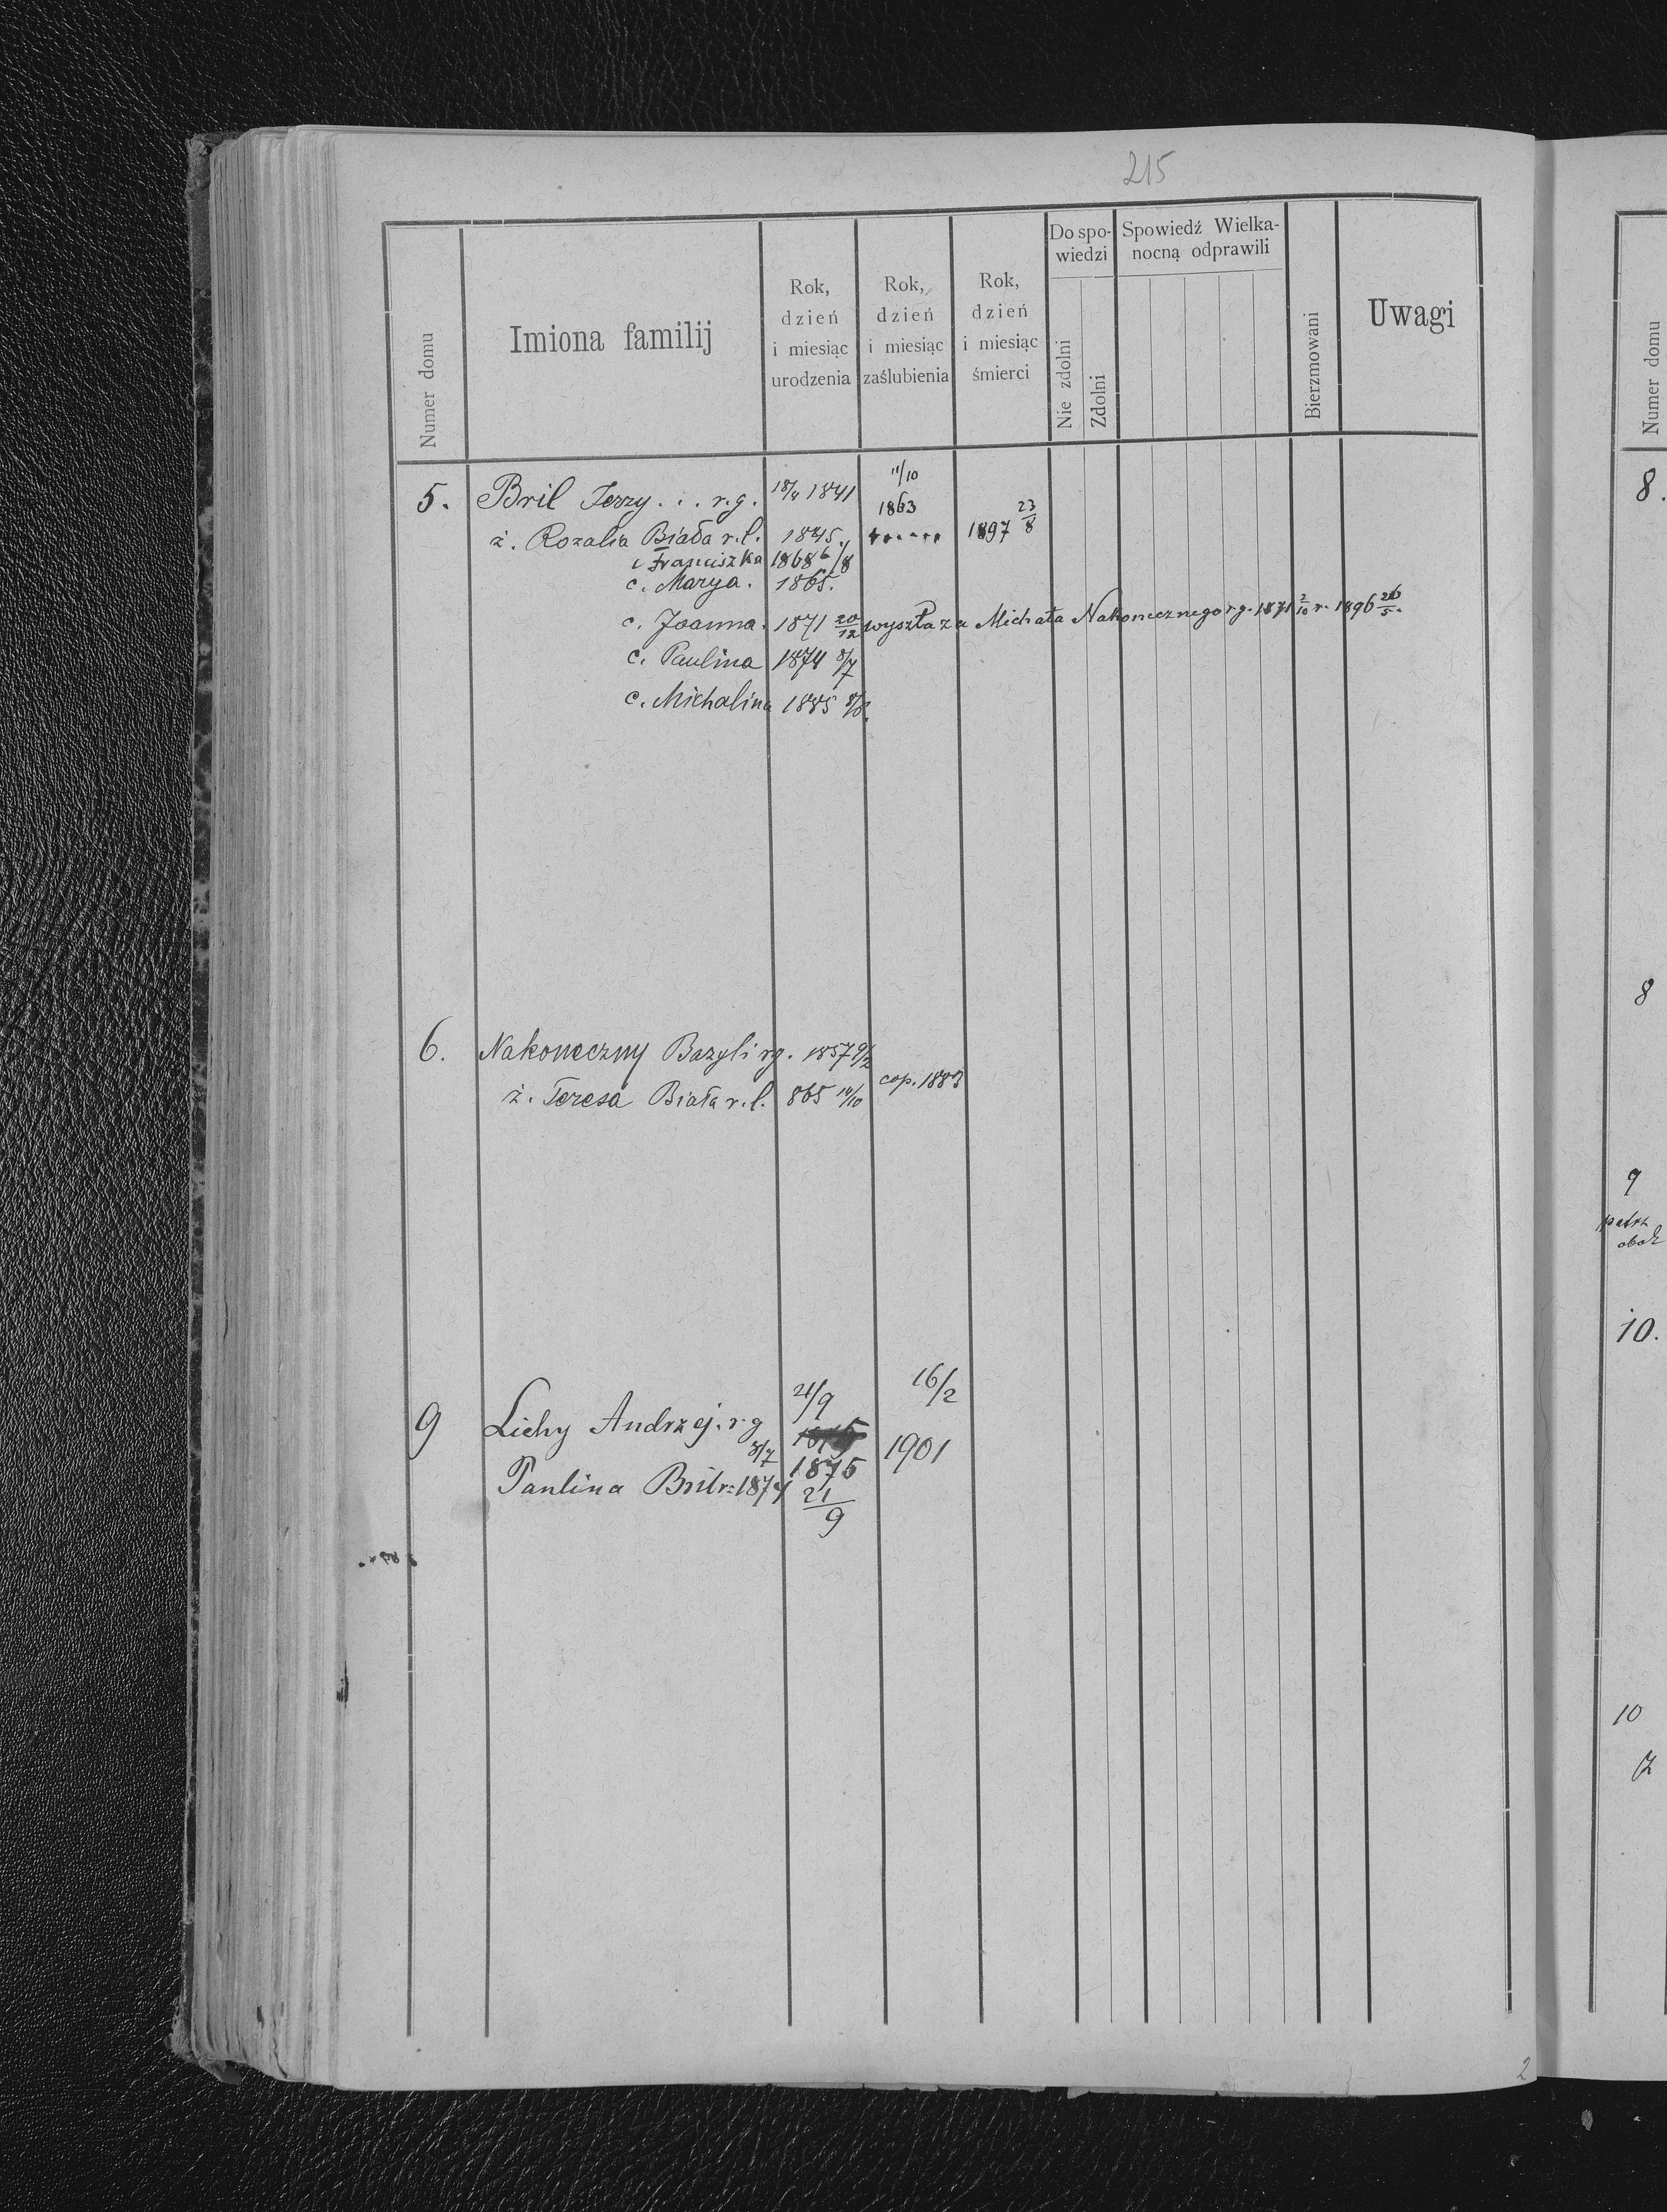 215
Numer domu
Imiona familij
Rok,
dzień
i miesiąc
urodzenia
Rok,
dzień
i miesiąc
zaślubienia
Rok,
dzień
i miesiąc
śmierci
Do spo-
wiedzi
Nie zdolni
Zdolni
Spowiedź Wielka-
nocną odprawili
Bierzmowani
Uwagi
Numer domu
5. Bril Jerzy . . . r.g. 18/4 1841 11/10
1863
ż. Rozalia Biała r.l. 1845. 1897 23/8
c Franciszka 1868 6/8
c. Marya. 1865.
c. Joanna. 1871 20/12 wyszła za Michała Nakonecznego r.g. 1871 2/10 r. 1896 26/5.
c. Paulina 1874 8/7
c. Michalina 1885 8/8.
6. Nakoneczny Bazyli rg. 1857 9/2
ż. Teresa Biała r.l. 865 14/10 cop. 1883
9 Lichy Andrzej. r.g 21/9 16/2
1901
8/7 1875
Paulina Bril r: 1874 21/9
2
8.
8
9
patrz
obok
10.
10